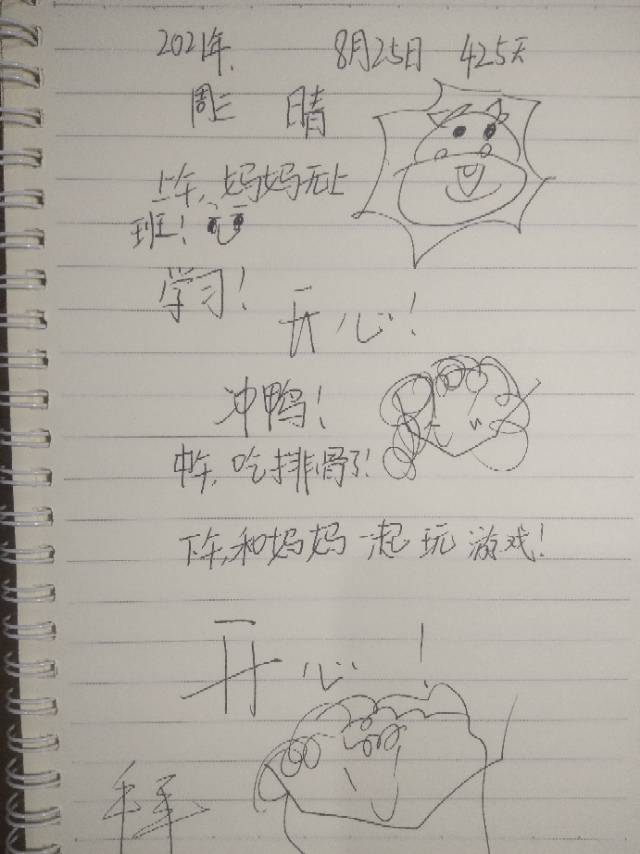 2021年. 8月25日 425天
周三 晴
上午,妈妈无上
班!
学习!
开心!
冲鸭!
中午,吃排骨了!
下午,和妈妈一起玩游戏!
开心!